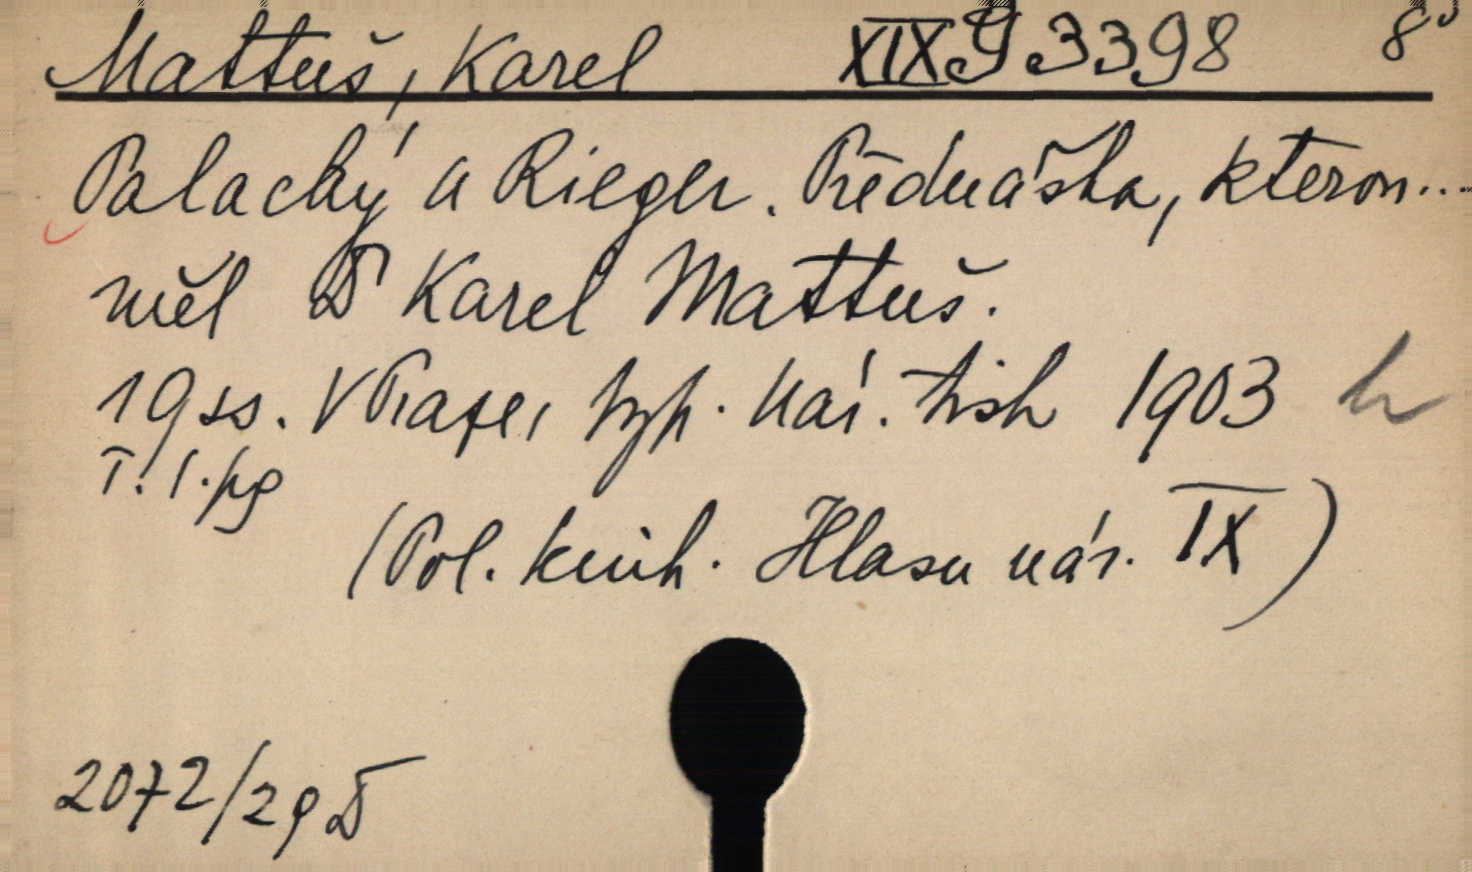 Mattuš, Karel XIX J 3398 8°
Palacký a Rieger. Přednáška, kterou...
měl Dr Karel Mattuš.
19 ss. V Praze, typ. Nár. tisk 1903
T. I. pg
(Pol. knih. Hlasu nár. IX)
2072/29 D